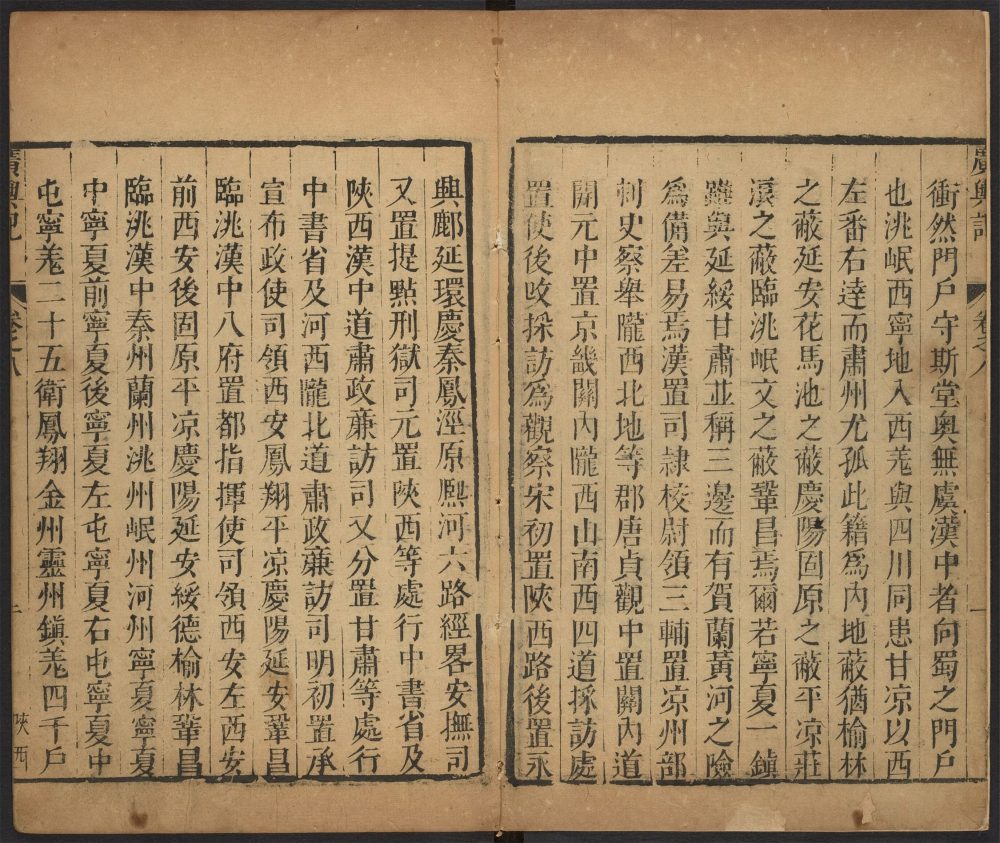 廣輿記
卷之八
一
衝然門戶守斯堂奧無虞漢中者向蜀之門戶
也洮岷西寧地入西羗與四川同患甘凉以西
左番右逹而肅州尤孤此籍爲内地蔽猶榆林
之蔽延安花馬池之蔽慶陽固原之蔽平凉莊
浪之蔽臨洮岷文之蔽鞏昌焉爾若寧夏一鎮
雖與延綏甘肅並稱三邊而有賀蘭黃河之險
爲備差易焉漢置司隷校尉領三輔置凉州部
刺史察舉隴西北地等郡唐貞觀中置關内道
開元中置京畿關内隴西山南西四道採訪處
置使後攺採訪爲觀察宋初置陜西路後置永
興鄜延環慶秦鳳涇原熈河六路經畧安撫司
又置提點刑獄司元置陜西等處行中書省及
陜西漢中道肅政廉訪司又分置甘肅等處行
中書省及河西隴北道肅政廉訪司明初置承
宣布政使司領西安鳳翔平凉慶陽延安鞏昌
臨洮漢中八府置都指揮使司領西安左西安
前西安後固原平凉慶陽延安綏德榆林鞏昌
臨洮漢中秦州蘭州洮州岷州河州寧夏寧夏
中寧夏前寧夏後寧夏左屯寧夏右屯寧夏中
屯寧羗二十五衛鳳翔金州靈州鎮羗四千戶
廣輿記
卷之八
陜西